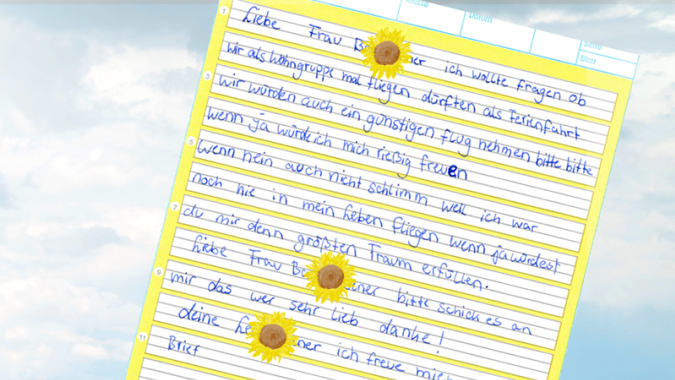 Klasse
Datum
Seite
Blatt
1 Liebe Frau B ner ich wollte fragen ob
wir als Wohngruppe mal fliegen dürften als Ferienfahrt
3 wir würden auch ein günstigen flug nehmen bitte bitte
wenn ja würde ich mich rießig freuen
5 wenn nein auch nicht schlimm weil ich war
noch nie in mein Leben fliegen wenn ja würdest
7 du mir denn größten Traum erfüllen.
Liebe Frau Be iner bitte schick es an
9 mir das wer sehr lieb danke!
deine ner ich freue
11 Brief